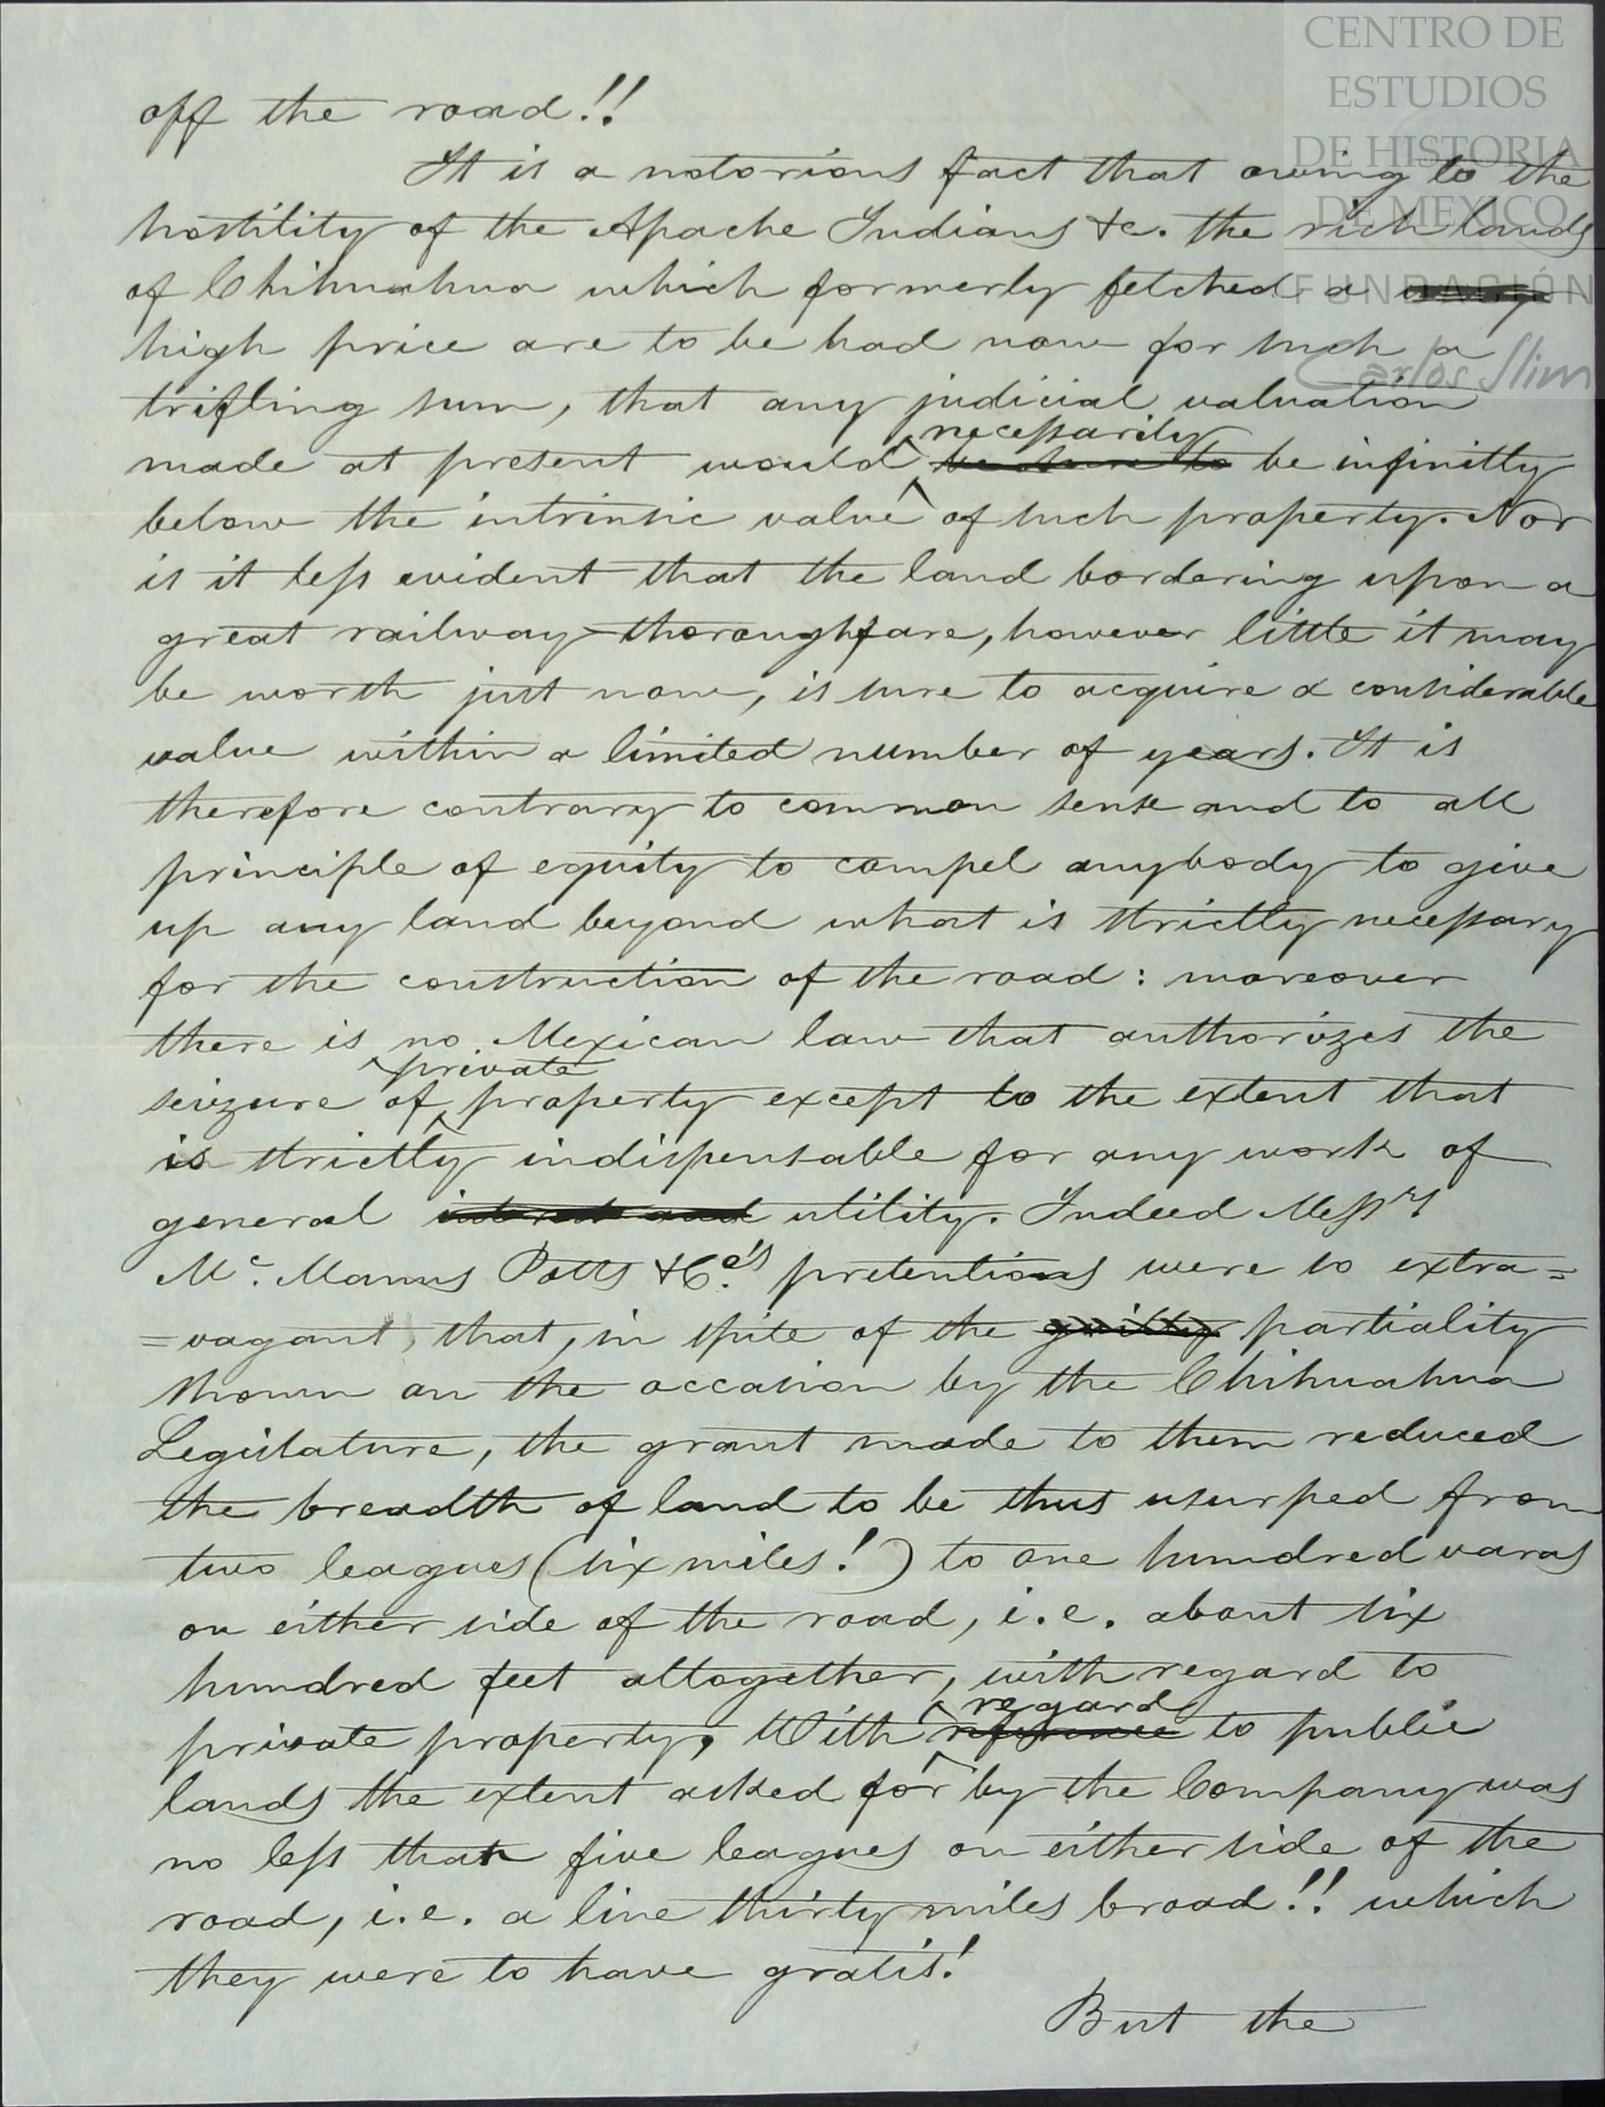 CENTRO DE
ESTUDIOS
DE HISTORIA
DE MEXICO
FUNDACIÓN
Carlos Slim
off the road!!
It is a notorious fact that owing to the
hostility of the Apache Indians &c. the rich lands
of Chihuahua which formerly fetched a
high price are to be had now for such a
trifling sum, that any judicial valuation
necessarily
made at present would be sure to be infinitly
below the intrinsic value of such property. Nor
is it less evident that the land bordering upon a
great railway thoroughfare, however little it may
be worth just now, is sure to acquire a considerable
value within a limited number of years. It is
therefore contrary to common sense and to all
principle of equity to compel anybody to give
up any land beyond what is strictly necessary
for the construction of the road: moreover
there is no Mexican law that authorizes the
private
seizure of property except to the extent that
is strictly indispensable for any work of
general interest and utility. Indeed Messrs
Mc. Manus Potts & Co's pretentions were so extra=
=vagant, that, in spite of the guilty partiality
shown on the occasion by the Chihuahua
Legislature, the grant made to them reduced
the breadth of land to be thus usurped from
two leagues (six miles!) to one hundred varas
on either side of the road, i.e. about six
hundred feet altogether, with regard to
regard
private property. With reference to public
lands the extent asked for by the Company was
no less than five leagues on either side of the
road, i.e. a line thirty miles broad!! which
they were to have gratis!
But the